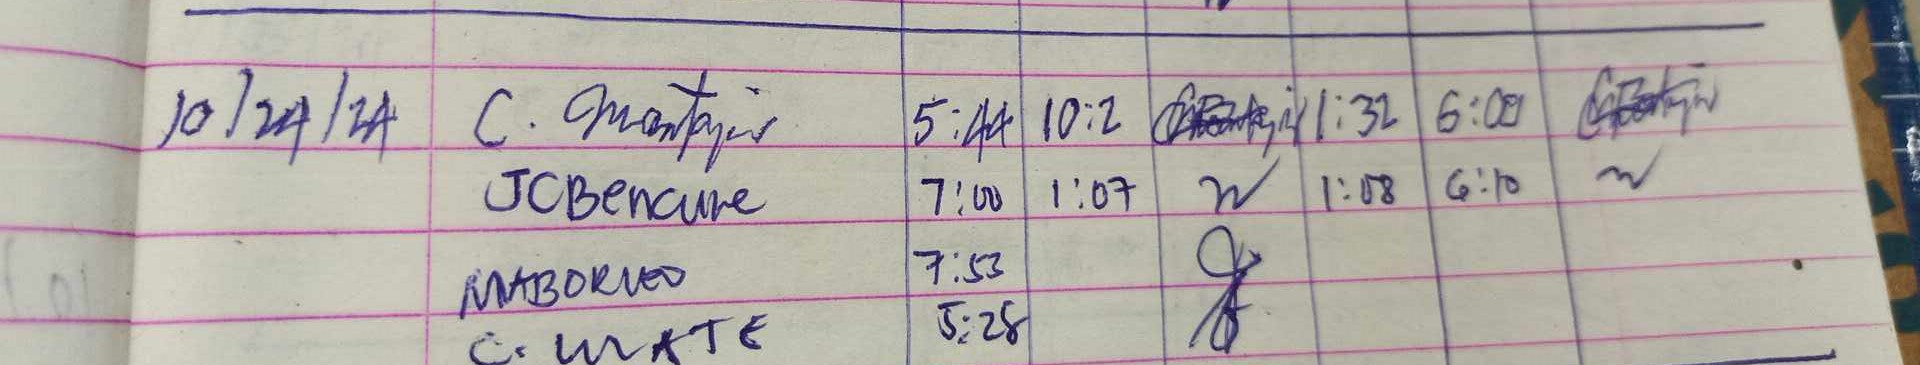 10/24/24 C. Montajir 5:44 10:2 1:32 6:09
JCBencure 7:00 1:07 1:08 6:10
MABORNEO 7:53
C. URATE 5:28